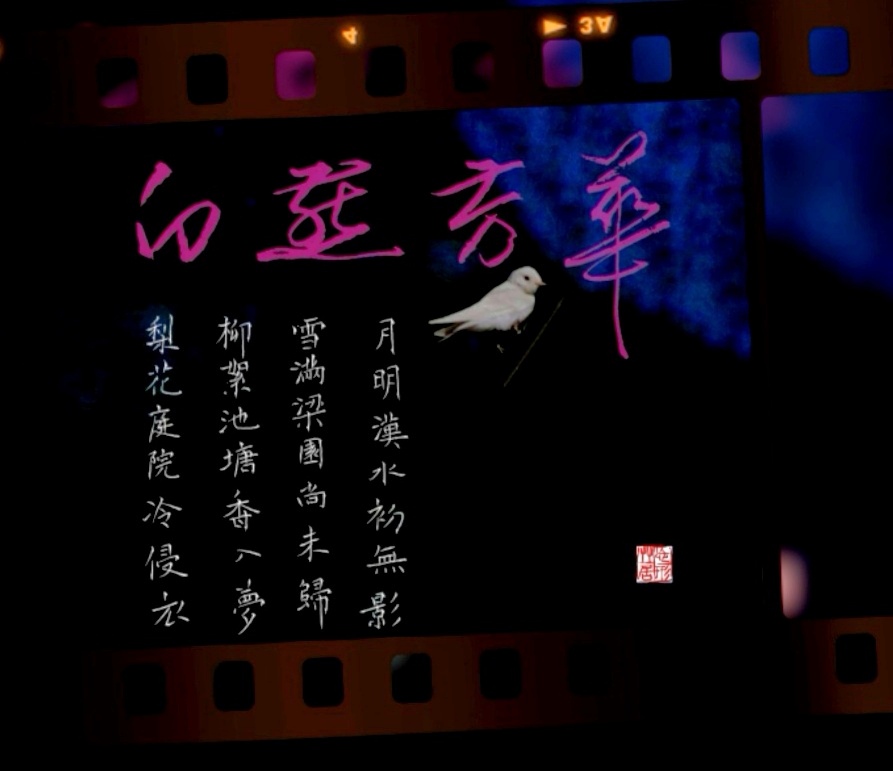 4
▶ 3A
白燕芳華
月明漢水初無影
雪滿梁園尚未歸
柳絮池塘香入夢
梨花庭院冷侵衣